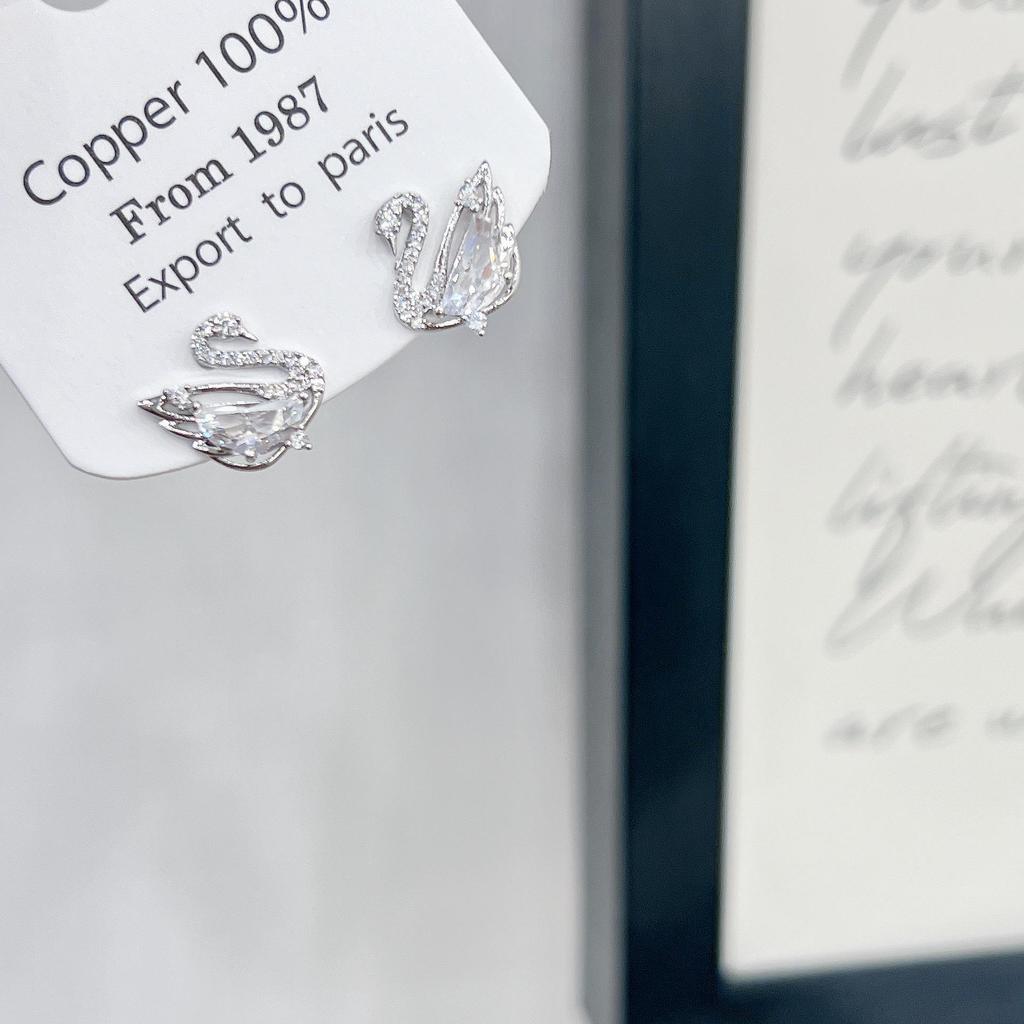 Copper 100%
From 1987
Export to paris
last
your
heart
lifting
are